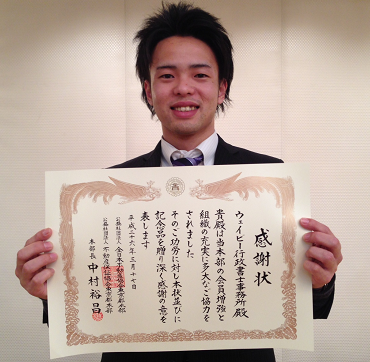 感謝状
ウェイビー行政書士事務所殿
貴殿は当本部の会員増強と
組織の充実に多大なご協力を
されました
そのご功労に対し本状並びに
記念品を贈り深く感謝の意を
表します
平成二十六年三月十七日
公益社団法人 全日本不動産協会東京都本部
公益社団法人 不動産保証協会東京都本部
本部長 中村裕昌